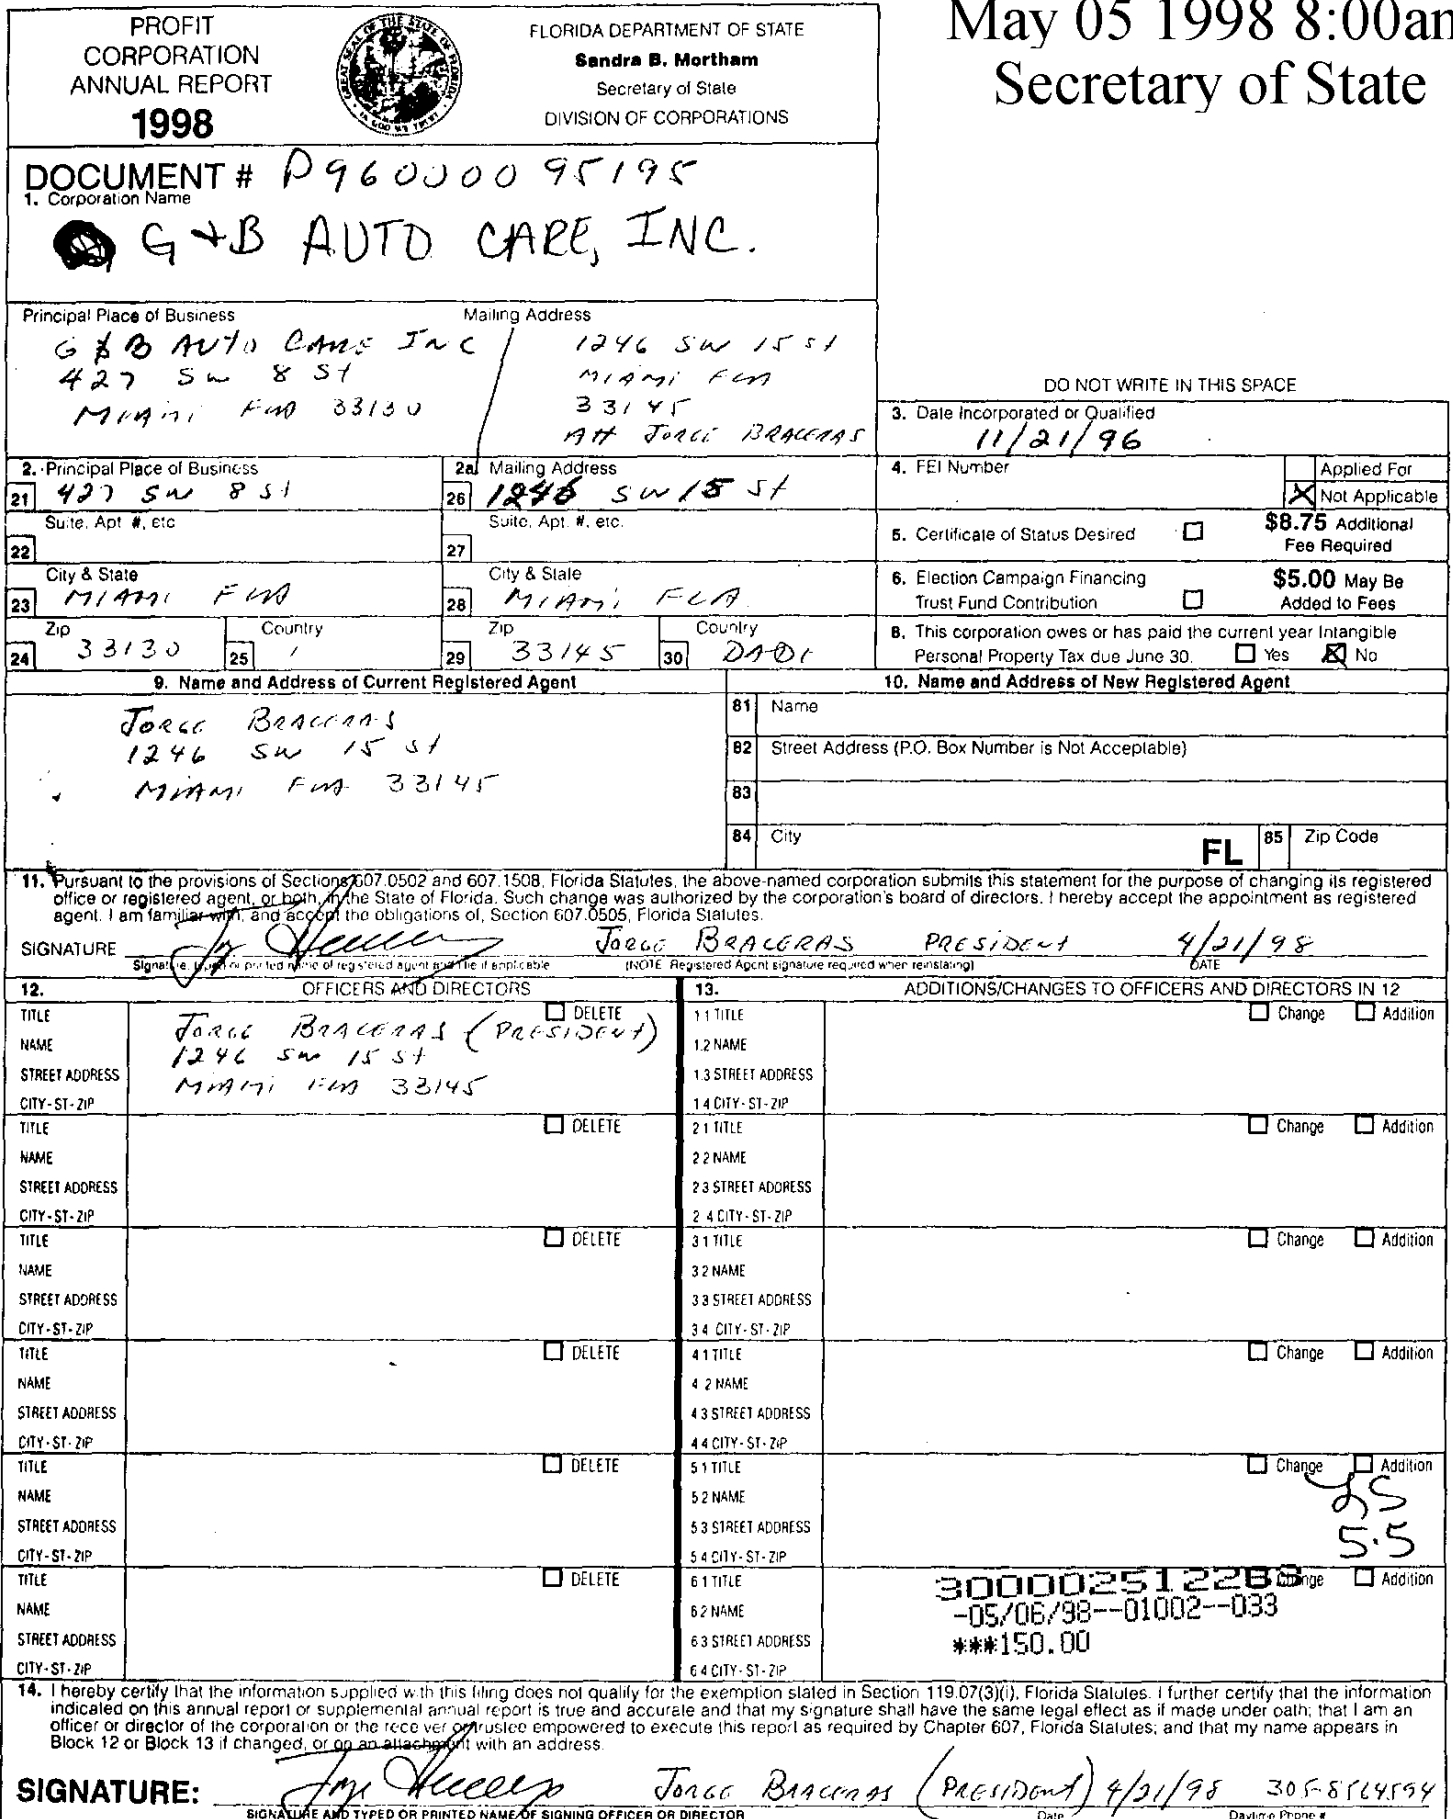 PROFIT
CORPORATION
ANNUAL REPORT
1998
GREAT SEAL OF THE STATE OF FLORIDA
IN GOD WE TRUST
FLORIDA DEPARTMENT OF STATE
Sandra B. Mortham
Secretary of State
DIVISION OF CORPORATIONS
May 05 1998 8:00am
Secretary of State
DOCUMENT # P96000095195
1. Corporation Name
G+B AUTO CARE, INC.
Principal Place of Business
G & B AUTO CARE INC
427 SW 8 St
MIAMI FLA 33130
Mailing Address
1246 SW 15 St
MIAMI FLA
33145
Att JORGE BRACERAS
DO NOT WRITE IN THIS SPACE
3. Date Incorporated or Qualified
11/21/96
2. Principal Place of Business
21 427 SW 8 St
2a Mailing Address
26 1246 SW 15 St
4. FEI Number
Applied For
X Not Applicable
Suite, Apt. #, etc
22
Suite, Apt. #, etc.
27
5. Certificate of Status Desired
$8.75 Additional
Fee Required
City & State
23 MIAMI FLA
City & State
28 MIAMI FLA
6. Election Campaign Financing
Trust Fund Contribution
$5.00 May Be
Added to Fees
Zip
24 33130
Country
25
Zip
29 33145
Country
30 DADE
8. This corporation owes or has paid the current year Intangible
Personal Property Tax due June 30. Yes X No
9. Name and Address of Current Registered Agent
JORGE BRACERAS
1246 SW 15 St
MIAMI FLA 33145
10. Name and Address of New Registered Agent
81 Name
82 Street Address (P.O. Box Number is Not Acceptable)
83
84 City
FL
85 Zip Code
11. Pursuant to the provisions of Sections 607.0502 and 607.1508, Florida Statutes, the above-named corporation submits this statement for the purpose of changing its registered
office or registered agent, or both, in the State of Florida. Such change was authorized by the corporation's board of directors. I hereby accept the appointment as registered
agent. I am familiar with, and accept the obligations of, Section 607.0505, Florida Statutes.
SIGNATURE JORGE BRACERAS PRESIDENT 4/21/98
Signature, typed or printed name of registered agent and title if applicable
(NOTE Registered Agent signature required when reinstating)
DATE
12. OFFICERS AND DIRECTORS
13. ADDITIONS/CHANGES TO OFFICERS AND DIRECTORS IN 12
TITLE
NAME
STREET ADDRESS
CITY-ST-ZIP
DELETE
JORGE BRACERAS (PRESIDENT)
1246 SW 15 St
MIAMI FLA 33145
1 1 TITLE
1.2 NAME
1.3 STREET ADDRESS
1 4 CITY-ST-ZIP
Change Addition
TITLE
NAME
STREET ADDRESS
CITY-ST-ZIP
DELETE
2 1 TITLE
2 2 NAME
2 3 STREET ADDRESS
2 4 CITY-ST-ZIP
Change Addition
TITLE
NAME
STREET ADDRESS
CITY-ST-ZIP
DELETE
3 1 TITLE
3 2 NAME
3 3 STREET ADDRESS
3 4 CITY-ST-ZIP
Change Addition
TITLE
NAME
STREET ADDRESS
CITY-ST-ZIP
DELETE
4 1 TITLE
4 2 NAME
4 3 STREET ADDRESS
4 4 CITY-ST-ZIP
Change Addition
TITLE
NAME
STREET ADDRESS
CITY-ST-ZIP
DELETE
5 1 TITLE
5 2 NAME
5 3 STREET ADDRESS
5 4 CITY-ST-ZIP
Change Addition
5.5
TITLE
NAME
STREET ADDRESS
CITY-ST-ZIP
DELETE
6 1 TITLE
6 2 NAME
6 3 STREET ADDRESS
6 4 CITY-ST-ZIP
Change Addition
-05/06/98--01002--033
***150.00
14. I hereby certify that the information supplied with this filing does not qualify for the exemption stated in Section 119.07(3)(i), Florida Statutes. I further certify that the information
indicated on this annual report or supplemental annual report is true and accurate and that my signature shall have the same legal effect as if made under oath; that I am an
officer or director of the corporation or the receiver or trustee empowered to execute this report as required by Chapter 607, Florida Statutes; and that my name appears in
Block 12 or Block 13 if changed, or on an attachment with an address.
SIGNATURE: JORGE BRACERAS (PRESIDENT) 4/21/98 305-8564594
SIGNATURE AND TYPED OR PRINTED NAME OF SIGNING OFFICER OR DIRECTOR
Date
Daytime Phone #